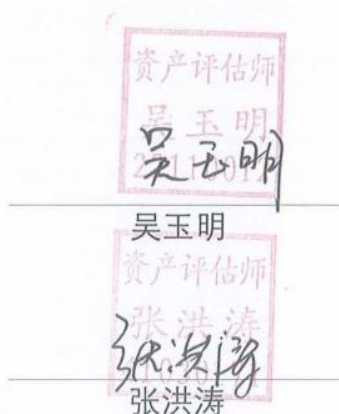 资产评估师
吴玉明
吴玉明
吴玉明
资产评估师
张洪涛
张洪涛
张洪涛